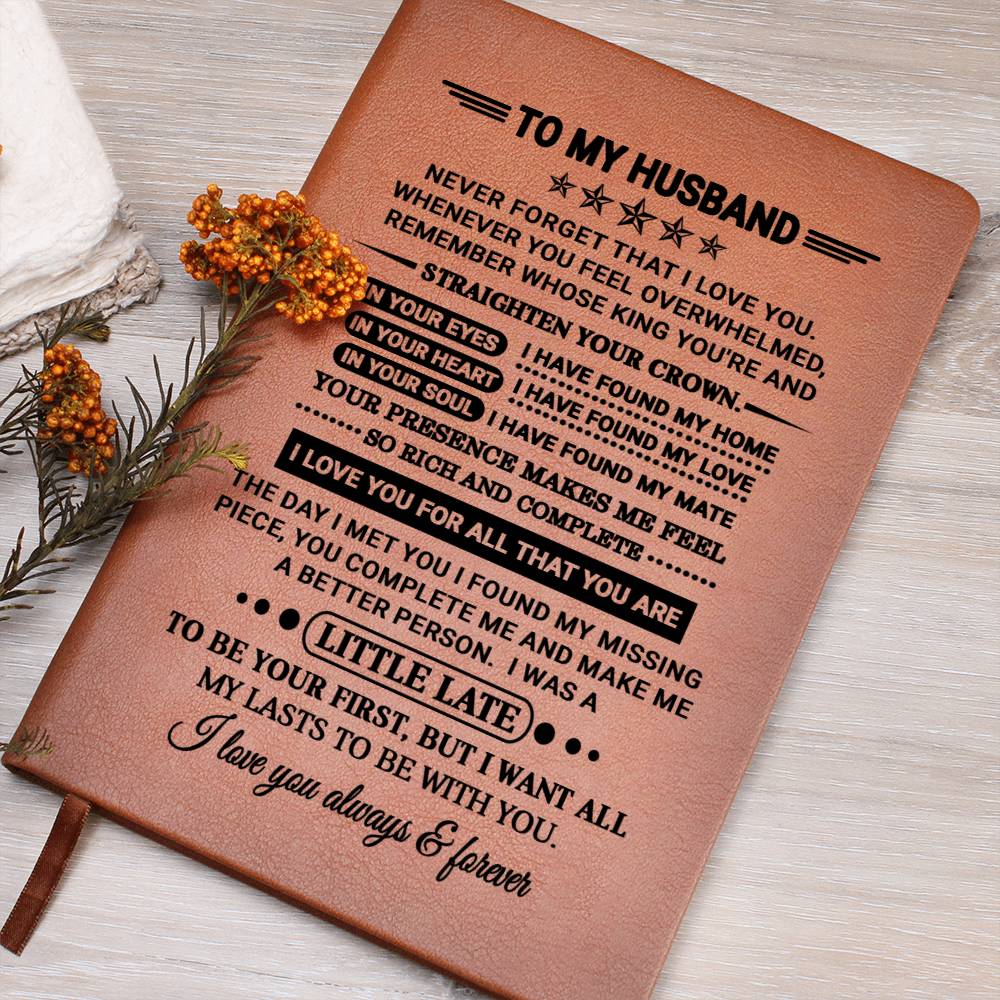 TO MY HUSBAND
NEVER FORGET THAT I LOVE YOU.
WHENEVER YOU FEEL OVERWHELMED,
REMEMBER WHOSE KING YOU'RE AND
STRAIGHTEN YOUR CROWN.
IN YOUR EYES I HAVE FOUND MY HOME
IN YOUR HEART I HAVE FOUND MY LOVE
IN YOUR SOUL I HAVE FOUND MY MATE
YOUR PRESENCE MAKES ME FEEL
SO RICH AND COMPLETE
I LOVE YOU FOR ALL THAT YOU ARE
THE DAY I MET YOU I FOUND MY MISSING
PIECE, YOU COMPLETE ME AND MAKE ME
A BETTER PERSON. I WAS A
LITTLE LATE
TO BE YOUR FIRST, BUT I WANT ALL
MY LASTS TO BE WITH YOU.
I love you always & forever